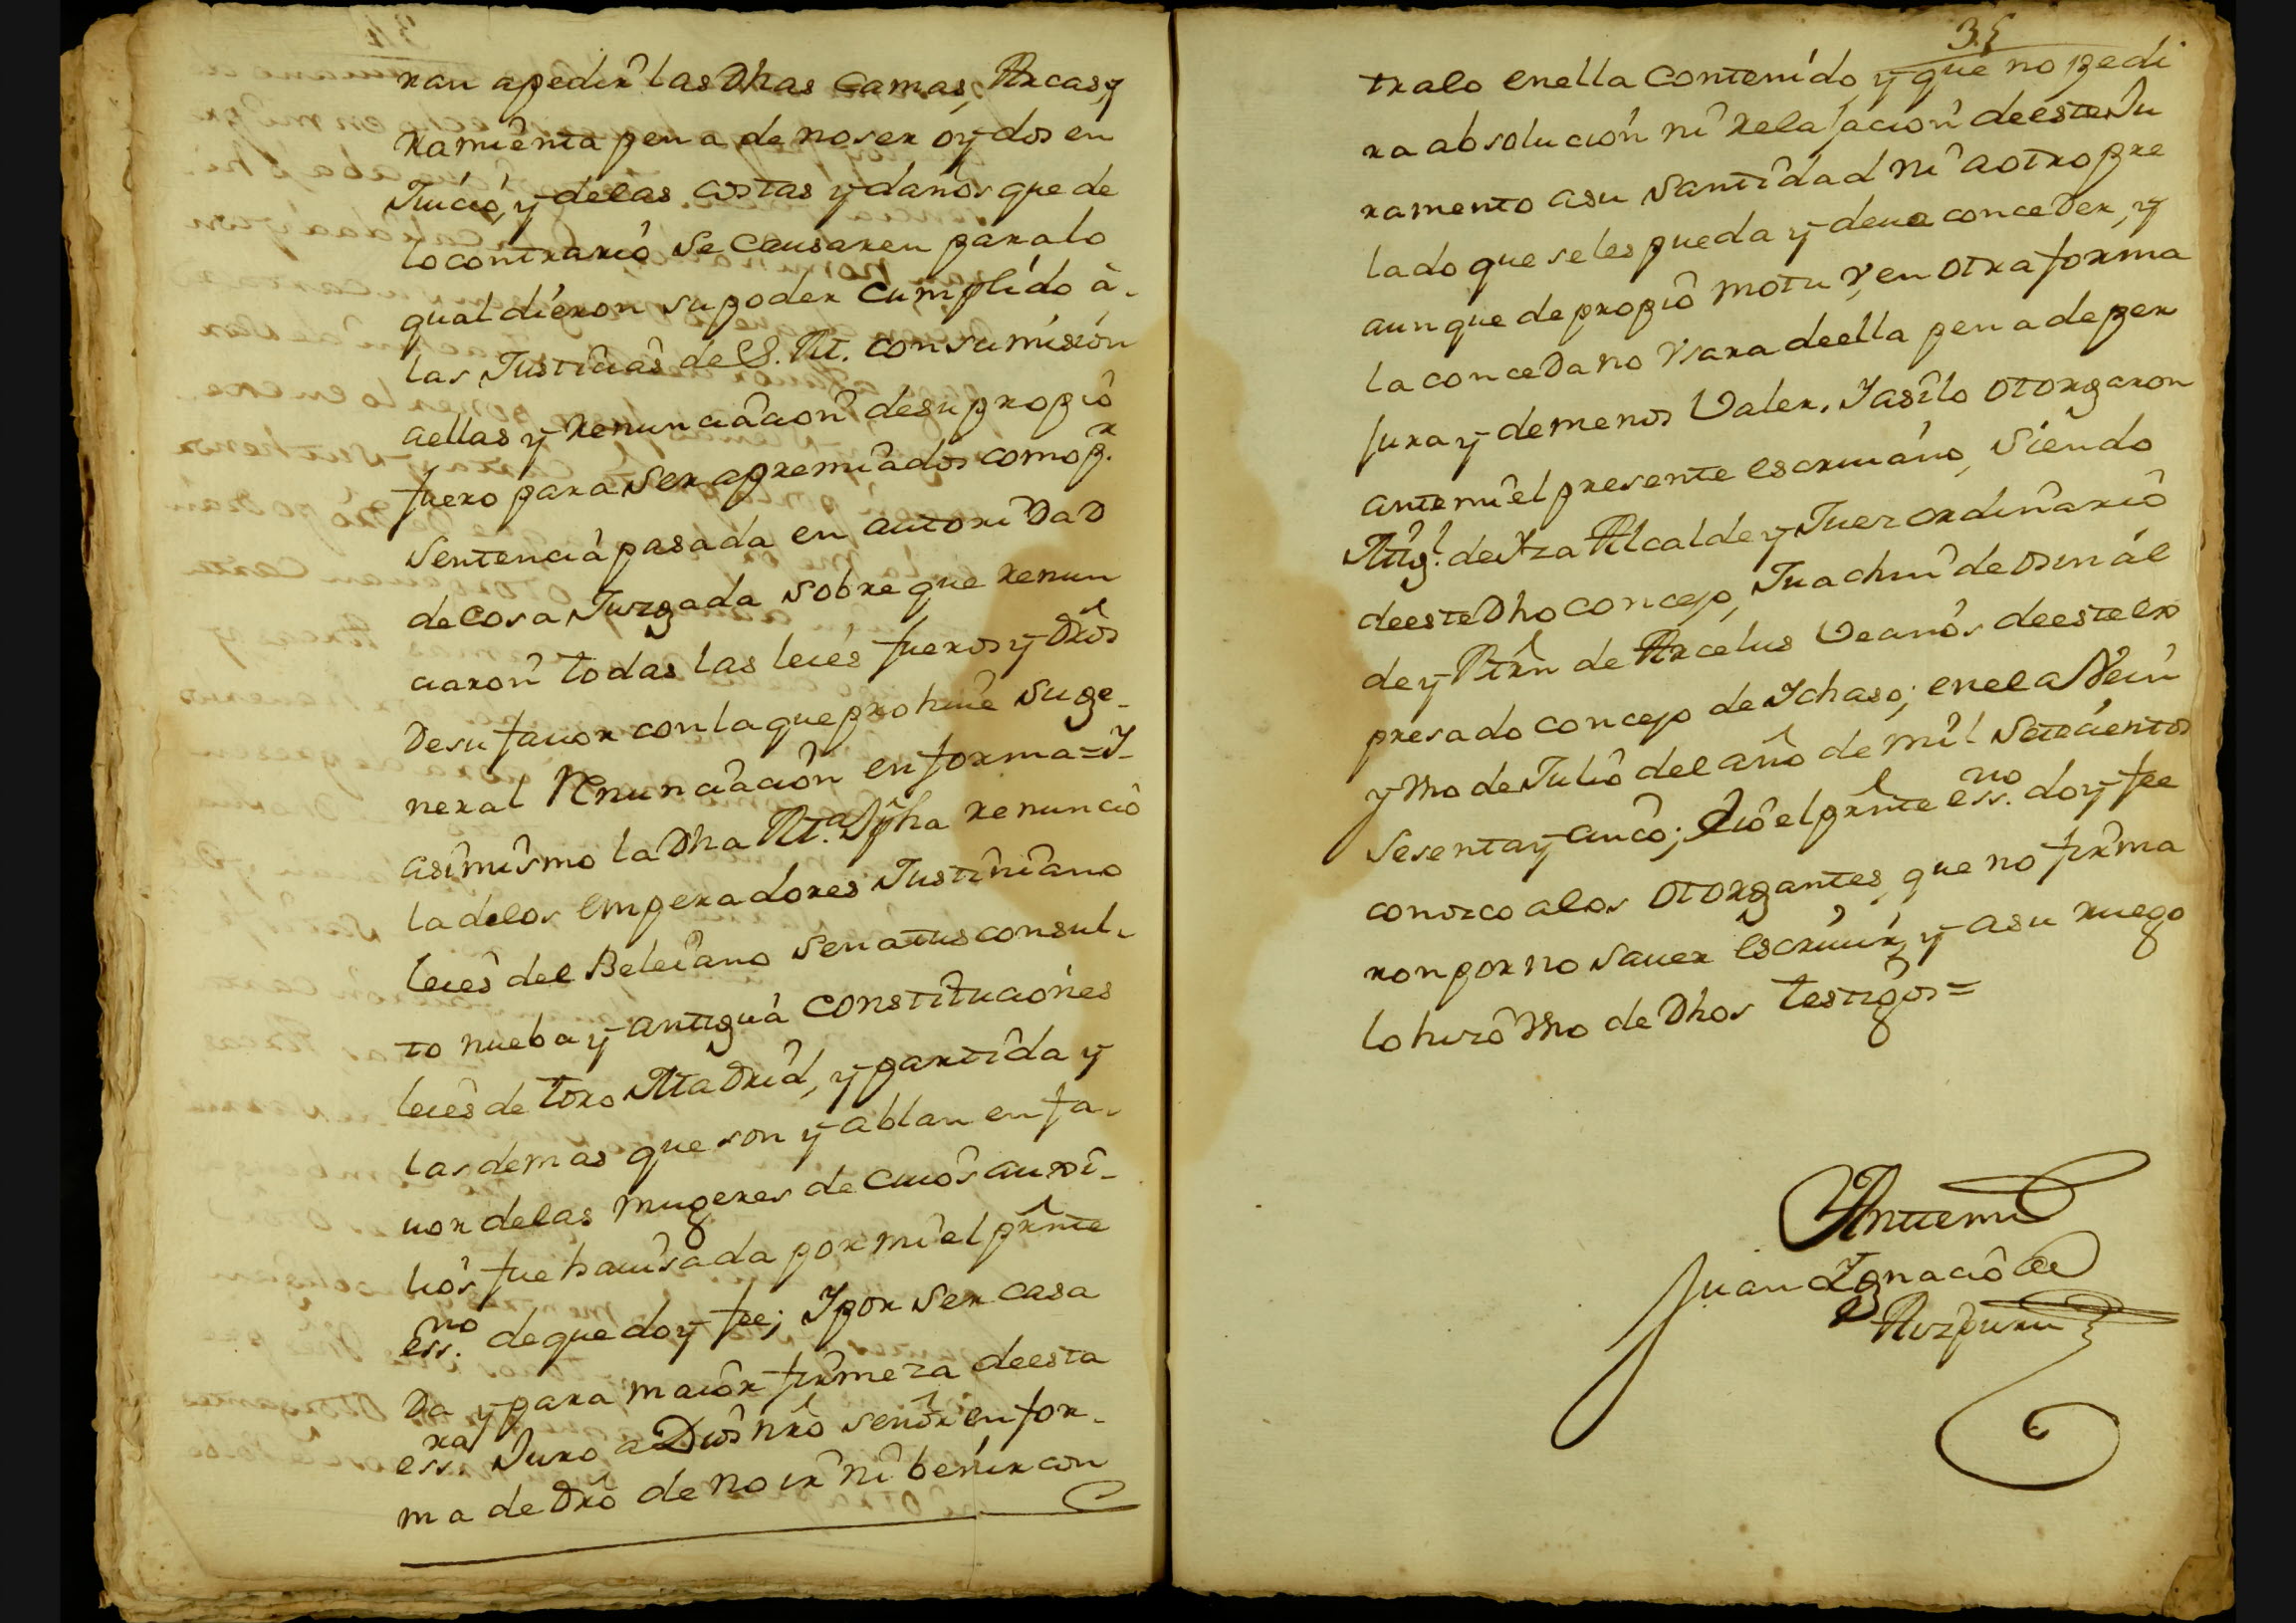 ran apedir las Dhas camas, Arcas, y
ramienta pena de no ser oydos en
Juicio, y delas costas y daños que de
lo contrario se causaren para lo
qual dieron su poder cumplido à
las Justicias de S. M. con sumision
aellas y renunciacion desu propio
fuero para ser apremiados como pr.
Sentencia pasada en autoridad
de cosa Juzgada sobre que renun
ciaron todas las leies fueros y Dros
De su fauor con la que prohiue su ge-
neral Renunciacion en forma = Y
asimismo la Dha Ma. Jpha renunciò
la delos emperadores Justiniano
leies del Beleiano Senatus consul-
to nueba y antigua constituciones
leies de toro Madrid, y partida y
las demas que son y ablan en fa-
uor delas mugeres de cuios auxi-
lios fue hauisada por mi el prnte
essno. de que doy fee; Y por ser casa
Da y para maior firmeza de esta
essra. Juro a Dios nro señor en for-
ma de Dro de no ir ni benir con
35
tra lo en ella contenido, y que no pedi
ra absolucion ni relajacion de este Ju
ramento asu Santidad ni aotro pre
lado que se les pueda y deua conceder, y
aunque de propio motu Y en otra forma
la conceda no Vsara de ella pena de per
jura y de menos Valer. Y asi lo otorgaron
ante mi el presente escriuano, siendo
Migl. de Yza Alcalde y Juez ordinario
de este Dho concejo, Juachin de osinal
de y Mrn de Arcelus Vecinos de este ex
presado concejo de Ychaso; en el a Vein
y Vno de Julio del año de mil Setecientos
Sesenta y cinco; Y io el prnte essno. doy fee
conozco alos otorgantes, que no firma
ron por no sauer escriuir, y asu ruego
lo hizo Vno de Dhos testigos =
Ante mi
Juan Ygnacio de
Aizpuru